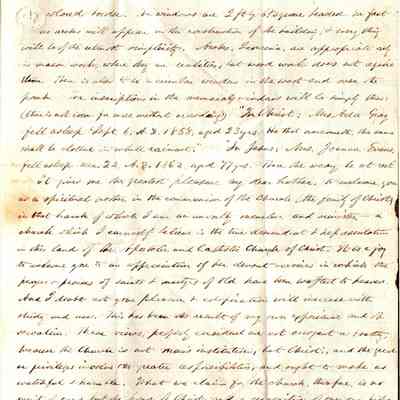 colored border. The windows are 2 ft by 6 square headed in fact
no arches will appear in the construction of the building, & every thing
will be of the utmost simplicity. Arches, I conceive, are appropriate only
in mason work, where they are realities, but wood work does not agree
them. There is also to be a circular window in the west end over the
porch. The inscription in the memorial windows will be simply these:
(this is not in for use without a reading) "In Christ; Mrs. Ada Gray
fell asleep Sept 6, A.D. 1858, aged 23 yrs. He that overcometh, the same
shall be clothed in white raiment." "In Jesus; Mrs. Joanna Evans,
fell asleep Dec. 22, A.D. 1862, aged 77 yrs. There the weary be at rest
It gives me the greatest pleasure my dear brother, to welcome you
as a spiritual brother in the communion of the Church, the family of Christ,
in that branch of which I am an unworthy member and minister - a
church which I am myself believe is the true descendant & representative
in this land of the Apostolic and Catholic Church of Christ. It is a joy
to welcome you to an appreciation of her devout services in which the
prayers & praises of saints & martyrs of old have been wafted to heaven.
And I doubt not your pleasure & satisfaction will increase with
study and use. This has been the result of my own experience and ob
servation. These views, properly considered are not arrogant or haughty,
because the Church is not man's institution, but Christ's, and the greater
privileges involve the greater responsibilities, and ought to make us
watchful & humble. What we claim for the church, therefore, is no